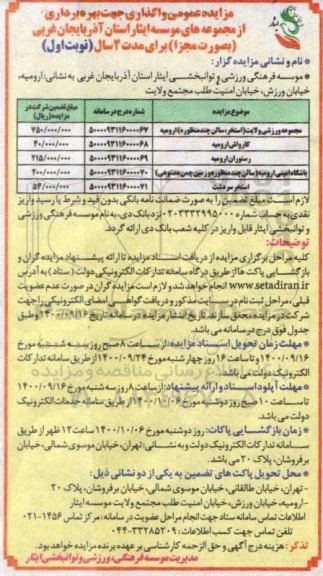 مزایده عمومی واگذاری جهت بهره برداری
از مجموعه های موسسه ایثار استان آذربایجان غربی
(بصورت مجزا) برای مدت ۲ سال (نوبت اول)
* نام و نشانی مزایده گزار:
* موسسه فرهنگی ورزشی و توانبخشی ایثار استان آذربایجان غربی به نشانی: ارومیه،
خیابان ورزش، خیابان امنیت طلب مجتمع ولایت
موضوع مزایده شماره درج در سامانه مبلغ تضمین شرکت در مزایده (ریال)
مجموعه ورزشی ولایت (استخر، سالن چند منظوره) ارومیه ۵۰۰۰۰۹۳۱۱۶۰۰۰۰۶۷ ۷۵۰/۰۰۰/۰۰۰
کارواش ارومیه ۵۰۰۰۰۹۳۱۱۶۰۰۰۰۶۸ ۴۰/۰۰۰/۰۰۰
رستوران ارومیه ۵۰۰۰۰۹۳۱۱۶۰۰۰۰۶۹ ۲۱۵/۰۰۰/۰۰۰
باشگاه امینی ارومیه (سالن چند منظوره و زمین چمن مصنوعی) ۵۰۰۰۰۹۳۱۱۶۰۰۰۰۷۰ ۲۰۰/۰۰۰/۰۰۰
استخر سردشت ۵۰۰۰۰۹۳۱۱۶۰۰۰۰۷۱ ۵۴/۰۰۰/۰۰۰
لازم است مبلغ تضمین را به صورت ضمانت نامه بانکی بدون قید و شرط یا رسید واریز
نقدی به حساب شماره ۰۲۰۳۳۳۲۹۹۵۰۰۰ نزد بانک دی، به نام موسسه فرهنگی ورزشی
و توانبخشی ایثار قابل واریز در کلیه شعب بانک دی ارائه گردد.
توضیحات:
کلیه مراحل برگزاری مزایده از دریافت اسناد مزایده تا ارائه پیشنهاد مزایده گران و
بازگشایی پاکت ها از طریق درگاه سامانه تدارکات الکترونیکی دولت (ستاد) به آدرس
www.setadiran.ir انجام خواهد شد و لازم است مزایده گران در صورت عدم عضویت
قبلی، مراحل ثبت نام در سایت مذکور و دریافت گواهی امضای الکترونیکی را جهت
شرکت در مزایده محقق سازند. تاریخ انتشار مزایده در سامانه تاریخ ۱۴۰۰/۰۹/۱۶ وطبق
جدول فوق درج در سامانه می باشد.
* مهلت زمان تحویل اسناد مزایده: از ساعت ۸ صبح روز سه شنبه مورخ
۱۴۰۰/۰۹/۱۶ و تا ساعت ۱۶ روز چهار شنبه مورخ ۱۴۰۰/۰۹/۲۴ از طریق سامانه تدارکات
الکترونیک دولت می باشد.
* مهلت آپلود اسناد و ارائه پیشنهاد: از ساعت ۸ روز سه شنبه مورخ ۱۴۰۰/۰۹/۱۶
تا ساعت ۱۰ صبح روز دوشنبه مورخ ۱۴۰۰/۱۰/۰۶ از طریق سامانه خدمات الکترونیک
دولت می باشد.
* زمان بازگشایی پاکات: روز دوشنبه مورخ ۱۴۰۰/۱۰/۰۶ ساعت ۱۲ ظهر از طریق
سامانه تدارکات الکترونیک دولت و به نشانی: تهران، خیابان موسوی شمالی، خیابان
برفروشان، پلاک ۲۰ می باشد.
* محل تحویل پاکت های تضمین به یکی از دو نشانی ذیل:
-تهران، خیابان طالقانی، خیابان موسوی شمالی، خیابان برفروشان، پلاک ۲۰
-ارومیه، خیابان ورزش، خیابان امنیت طلب مجتمع ولایت موسسه ایثار
اطلاعات تماس سامانه ستاد جهت انجام مراحل عضویت در سامانه: مرکز تماس ۱۴۵۶-۰۲۱
تلفن تماس جهت کسب اطلاعات: ۳۳۲۸۵۲۰۹-۰۴۴
تذکر: هزینه درج آگهی و حق الزحمه کارشناسی بر عهده برنده مزایده خواهد بود.
مدیریت موسسه فرهنگی، ورزشی و توانبخشی ایثار